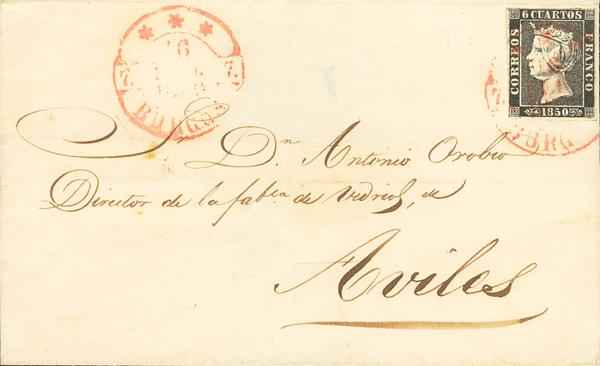 6 CUARTOS
CORREOS
FRANCO
1850
16
BURGOS
BURG
Sr. Dn. Antonio Orobio
Director de la fabca. de vidrios, de
Aviles